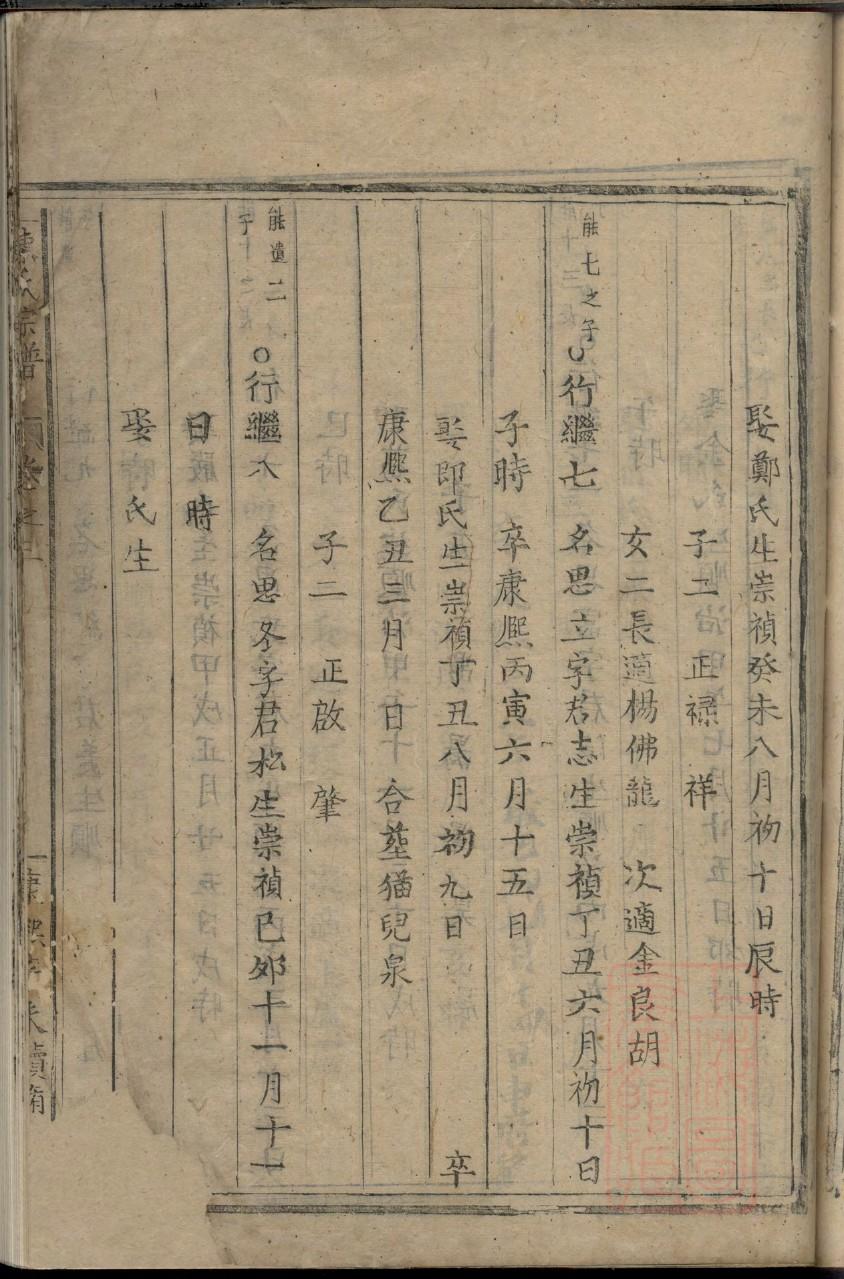 娶鄭氏生崇禎癸未八月初十日辰時
子二 正祿 祥
女二長適楊佛龍 次適金良胡
能七之子
○行繼七 名思立字君志生崇禎丁丑六月初十日
子時 卒康熈丙寅六月十五日
娶印氏生崇禎丁丑八月初九日 卒
康熈乙丑三月 日 合塟猫兒泉
子二 正啟 肇
能遺二子
○行繼八 名思冬字君松生崇禎已夘十一月十一
日 時
娶 氏生
氏宗譜